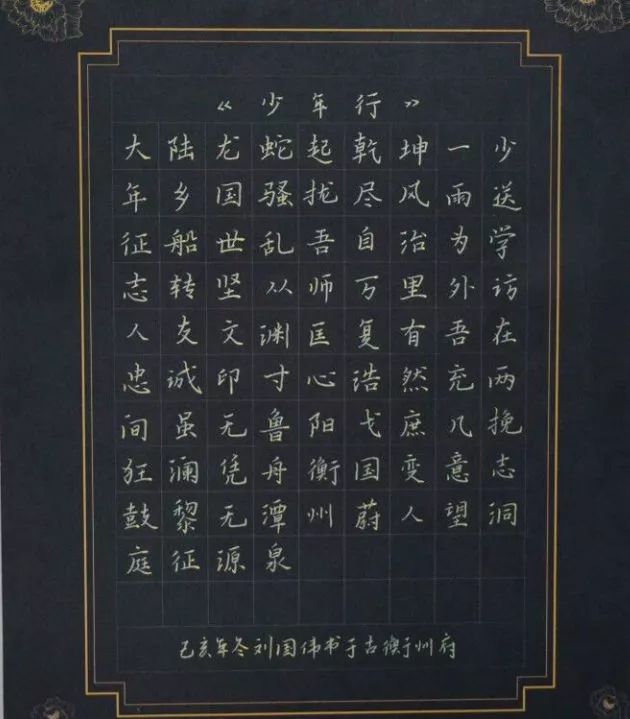 《少年行》
大陆龙蛇起乾坤一少
年乡国骚扰尽风雨送
征船世乱吾自治为学
志转坚从师万里外访
友人文渊匡复有吾在
忠诚印寸心浩然充两
间虽无鲁阳戈庶几挽
狂澜凭舟衡国变意志
鼓黎无潭州蔚人望洞
庭征源泉
己亥年冬刘国伟书于古衡于州府